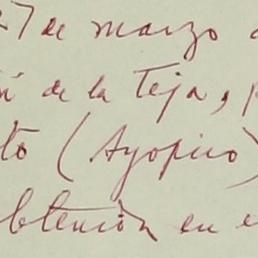 27 de marzo
de la Teja,
to (Ayopico)
btención en e